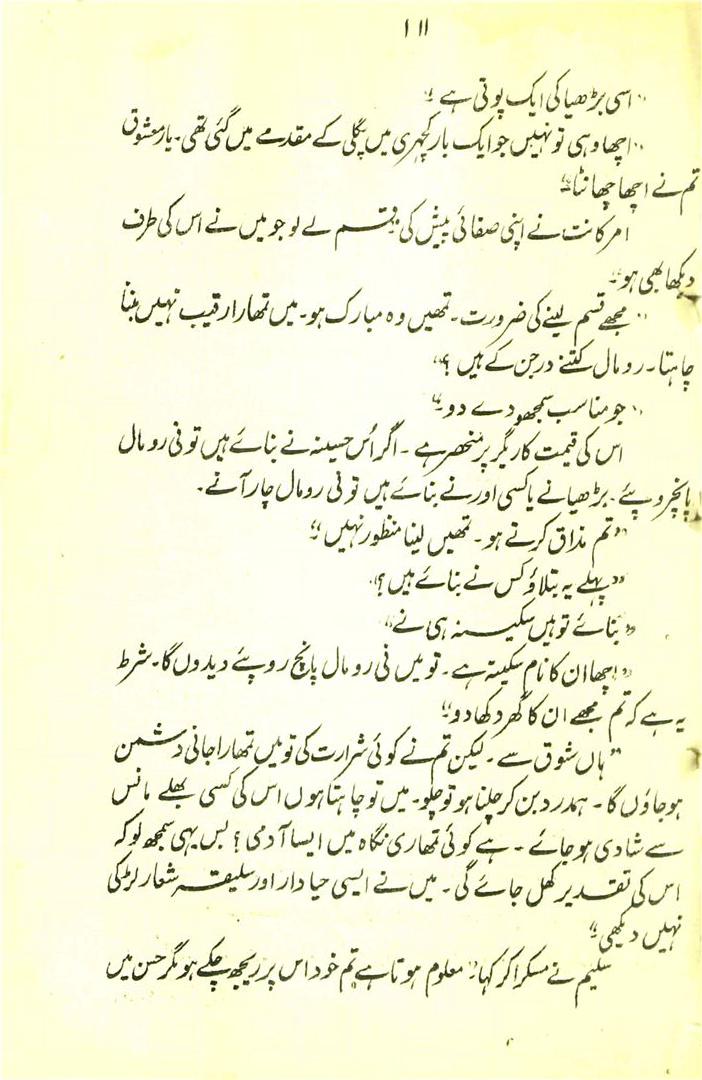 ۱۱۱
"اسی بڑھیا کی ایک پوتی ہے"
"اچھا وہی تو نہیں جو ایک بار کچہری میں پگلی کے مقدمے میں گئی تھی۔ یار معشوق
تم نے اچھا چھانٹا"
امرکانت نے اپنی صفائی پیش کی "قسم لے لو جو میں نے اس کی طرف
دیکھا بھی ہو"
"مجھے قسم لینے کی ضرورت۔ تمھیں وہ مبارک ہو۔ میں تمھارا رقیب نہیں بننا
چاہتا۔ رومال کتنے درجن کے ہیں؟"
"جو مناسب سمجھو دے دو"
اس کی قیمت کاریگر پر منحصر ہے۔ اگر اُس حسینہ نے بنائے ہیں تو فی رومال
پانچ روپئے۔ بڑھیا نے یا کسی اور نے بنائے ہیں تو فی رومال چار آنے۔
"تم مذاق کرتے ہو۔ تمھیں لینا منظور نہیں"
"پہلے یہ بتلاؤ کس نے بنائے ہیں؟"
"بنائے تو ہیں سکینہ ہی نے"
"اچھا ان کا نام سکینہ ہے۔ تو میں فی رومال پانچ روپئے دیدوں گا۔ شرط
یہ ہے کہ تم مجھے ان کا گھر دکھا دو"
"ہاں شوق سے۔ لیکن تم نے کوئی شرارت کی تو میں تمھارا جانی دشمن
ہو جاؤں گا۔ ہمدرد بن کر چلنا ہو تو چلو۔ میں تو چاہتا ہوں اس کی کسی بھلے مانس
سے شادی ہو جائے۔ ہے کوئی تمھاری نگاہ میں ایسا آدمی؟ بس یہی سمجھ لو کہ
اس کی تقدیر کھل جائے گی۔ میں نے ایسی حیادار اور سلیقہ شعار لڑکی
نہیں دیکھی"
سلیم نے مسکرا کر کہا "معلوم ہوتا ہے تم خود اس پر ریجھ چکے ہو مگر حسن میں